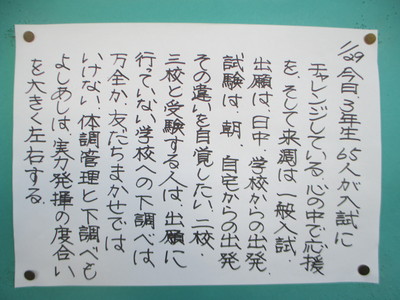 1/29 今日、3年生65人が入試に
チャレンジしている。心の中で応援
を。そして来週は一般入試。
出願は、日中、学校からの出発、
試験は、朝、自宅からの出発
その違いを自覚したい。二校・
三校と受験する人は、出願に
行っていない学校への下調べは、
万全か。友だちまかせでは
いけない。体調管理と下調べも
よしあしは、実力発揮の度合い
を大きく左右する。